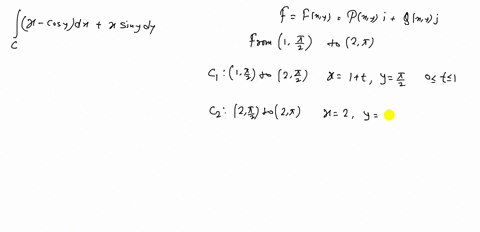 ∫_C (x - cosy)dx + x siny dy
f = f(x,y) = P(x,y) i + Q(x,y) j
from (1, π/2) to (2, π)
C₁ : (1, π/2) to (2, π/2) x = 1+t, y = π/2 0 ≤ t ≤ 1
C₂ : (2, π/2) to (2, π) x = 2, y =